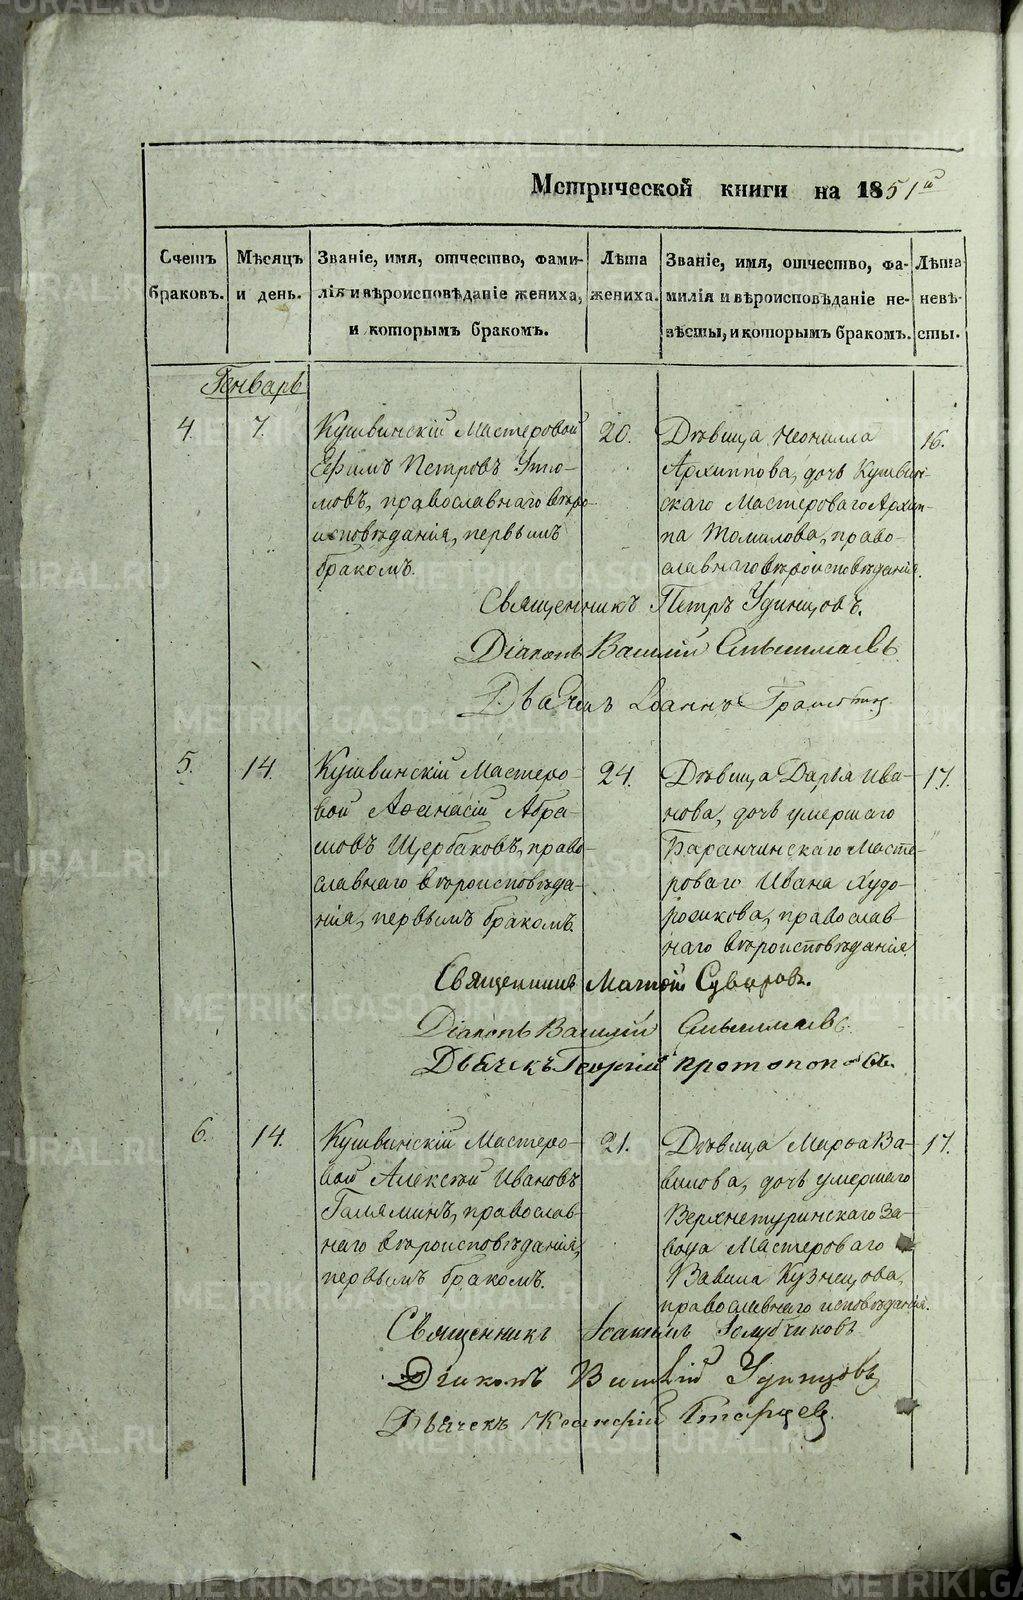 Метрической книги на 1851й
Счетъ браковъ.
Мѣсяцъ и день.
Званіе, имя, отчество, фами-
лія и вѣроисповѣданіе жениха,
и которымъ бракомъ.
Лѣта жениха.
Званіе, имя, отчество, фа-
милія и вѣроисповѣданіе не-
вѣсты, и которымъ бракомъ.
Лѣта невѣ-
сты.
Генварь
4.
7.
Кушвинскій Мастеровой
Ефимъ Петровъ Ути-
мовъ, православнаго вѣро-
исповѣданія, первымъ
бракомъ.
20.
Дѣвица Неонилла
Архиппова, дочь Кушвин-
скаго Мастероваго Архип-
па Томилова, право-
славнаго вѣроисповѣданія.
16.
Священникъ Петръ Удинцовъ.
Діаконъ Василій
Дьячекъ Іоаннъ
5.
14.
Кушвинскій Мастеро-
вой Афанасій Абра-
мовъ Щербаковъ, право-
славнаго вѣроисповѣда-
нія, первымъ бракомъ.
24.
Дѣвица Дарья Ива-
нова, дочь умершаго
Баранчинскаго Масте-
роваго Ивана Худо-
рожкова, православ-
наго вѣроисповѣданія
17.
Священникъ Матвѣй Суворовъ.
Діаконъ Василій
Дьячекъ Георгій Протопоповъ.
6.
14.
Кушвинскій Мастеро-
вой Алексѣй Ивановъ
Галяминъ, православ-
наго вѣроисповѣданія,
первымъ бракомъ.
21.
Дѣвица Марѳа Ва-
вилова, дочь умершаго
Верхнетуринскаго За-
вода Мастероваго
Вавила Кузнецова,
православнаго исповѣданія.
17.
Священникъ Іоакимъ Голубчиковъ
Діаконъ Василій Удинцовъ
Дьячекъ Старцевъ.
METRIKI.GASO-URAL.RU